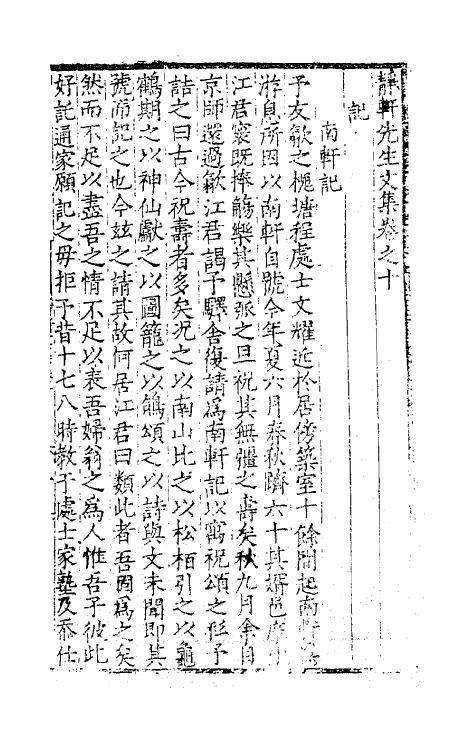 靜軒先生文集卷之十
記
南軒記
予友歙之槐塘程處士文耀近於居傍築室十餘間起南軒為
游息所因以南軒自號今年夏六月春秋躋六十其婿邑庠
江君寰既捧觴樂其懸弧之旦祝其無彊之壽矣秋九月余自
京師還過歙江君謁予驛舍復請為南軒記以寓祝頌之私予
詰之曰古今祝壽者多矣況之以南山比之以松栢引之以龜
鶴期之以神仙獻之以圖籠之以鵤頌之以詩與文未聞即其
號而記之也今玆之請其故何居江君曰類此者吾固為之矣
然而不足以盡吾之情不足以表吾婦翁之為人惟吾子彼此
好託通家願記之毋拒予昔十七八時教于處士家塾及忝仕